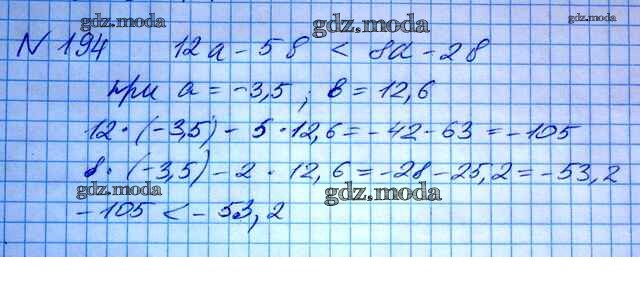 gdz.moda gdz.moda gdz.moda
№194 12a - 5в < 8a - 2в
при a = -3,5; в = 12,6
12·(-3,5) - 5·12,6 = -42 - 63 = -105
8·(-3,5) - 2·12,6 = -28 - 25,2 = -53,2
gdz.moda gdz.moda gdz.moda
-105 < -53,2